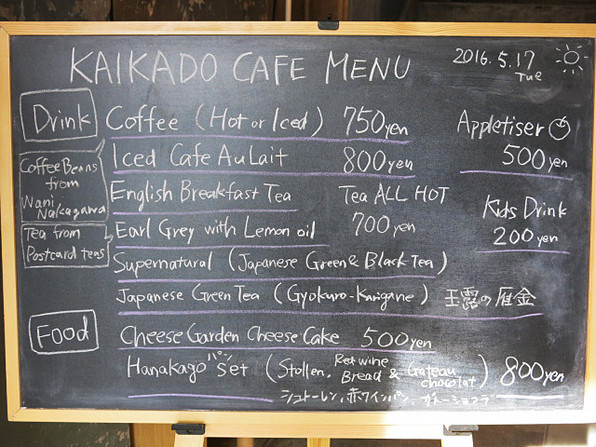 KAIKADO CAFE MENU
2016. 5. 17
Tue
Drink
Coffee (Hot or Iced) 750yen
Iced Cafe Au Lait 800yen
Appletiser
500yen
Coffee Beans
from
Nani
Nakagawa
English Breakfast Tea
Earl Grey with Lemon oil
Tea ALL HOT
700yen
Kids Drink
200yen
Tea from
Postcard teas
Supernatural (Japanese Green & Black Tea)
Japanese Green Tea (Gyokuro-Karigane) 玉露の雁金
Food
Cheese Garden Cheese Cake 500yen
パン
Hanakago Set (Stollen, Red wine Bread & Gateau chocolat) 800yen
シュトーレン、赤ワインパン、ガトーショコラ